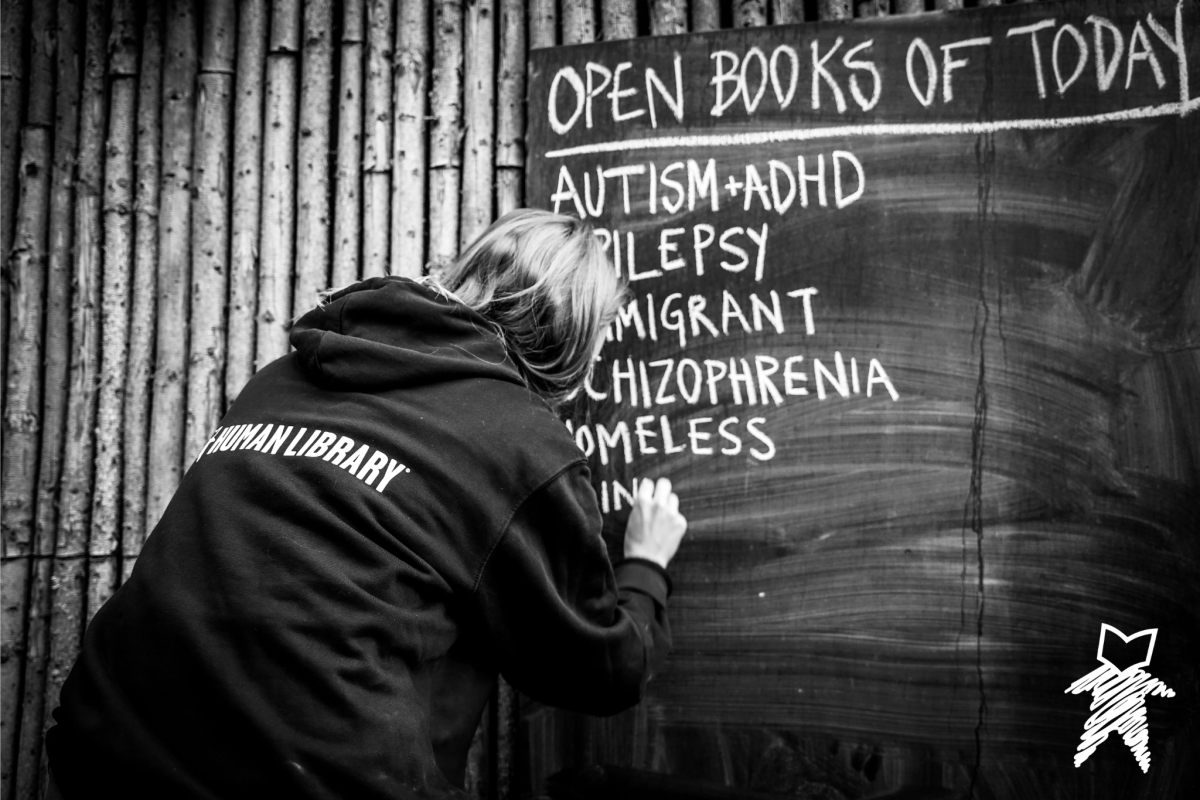 OPEN BOOKS OF TODAY
AUTISM+ADHD
PILEPSY
MIGRANT
CHIZOPHRENIA
OMELESS
IN
HUMAN LIBRARY